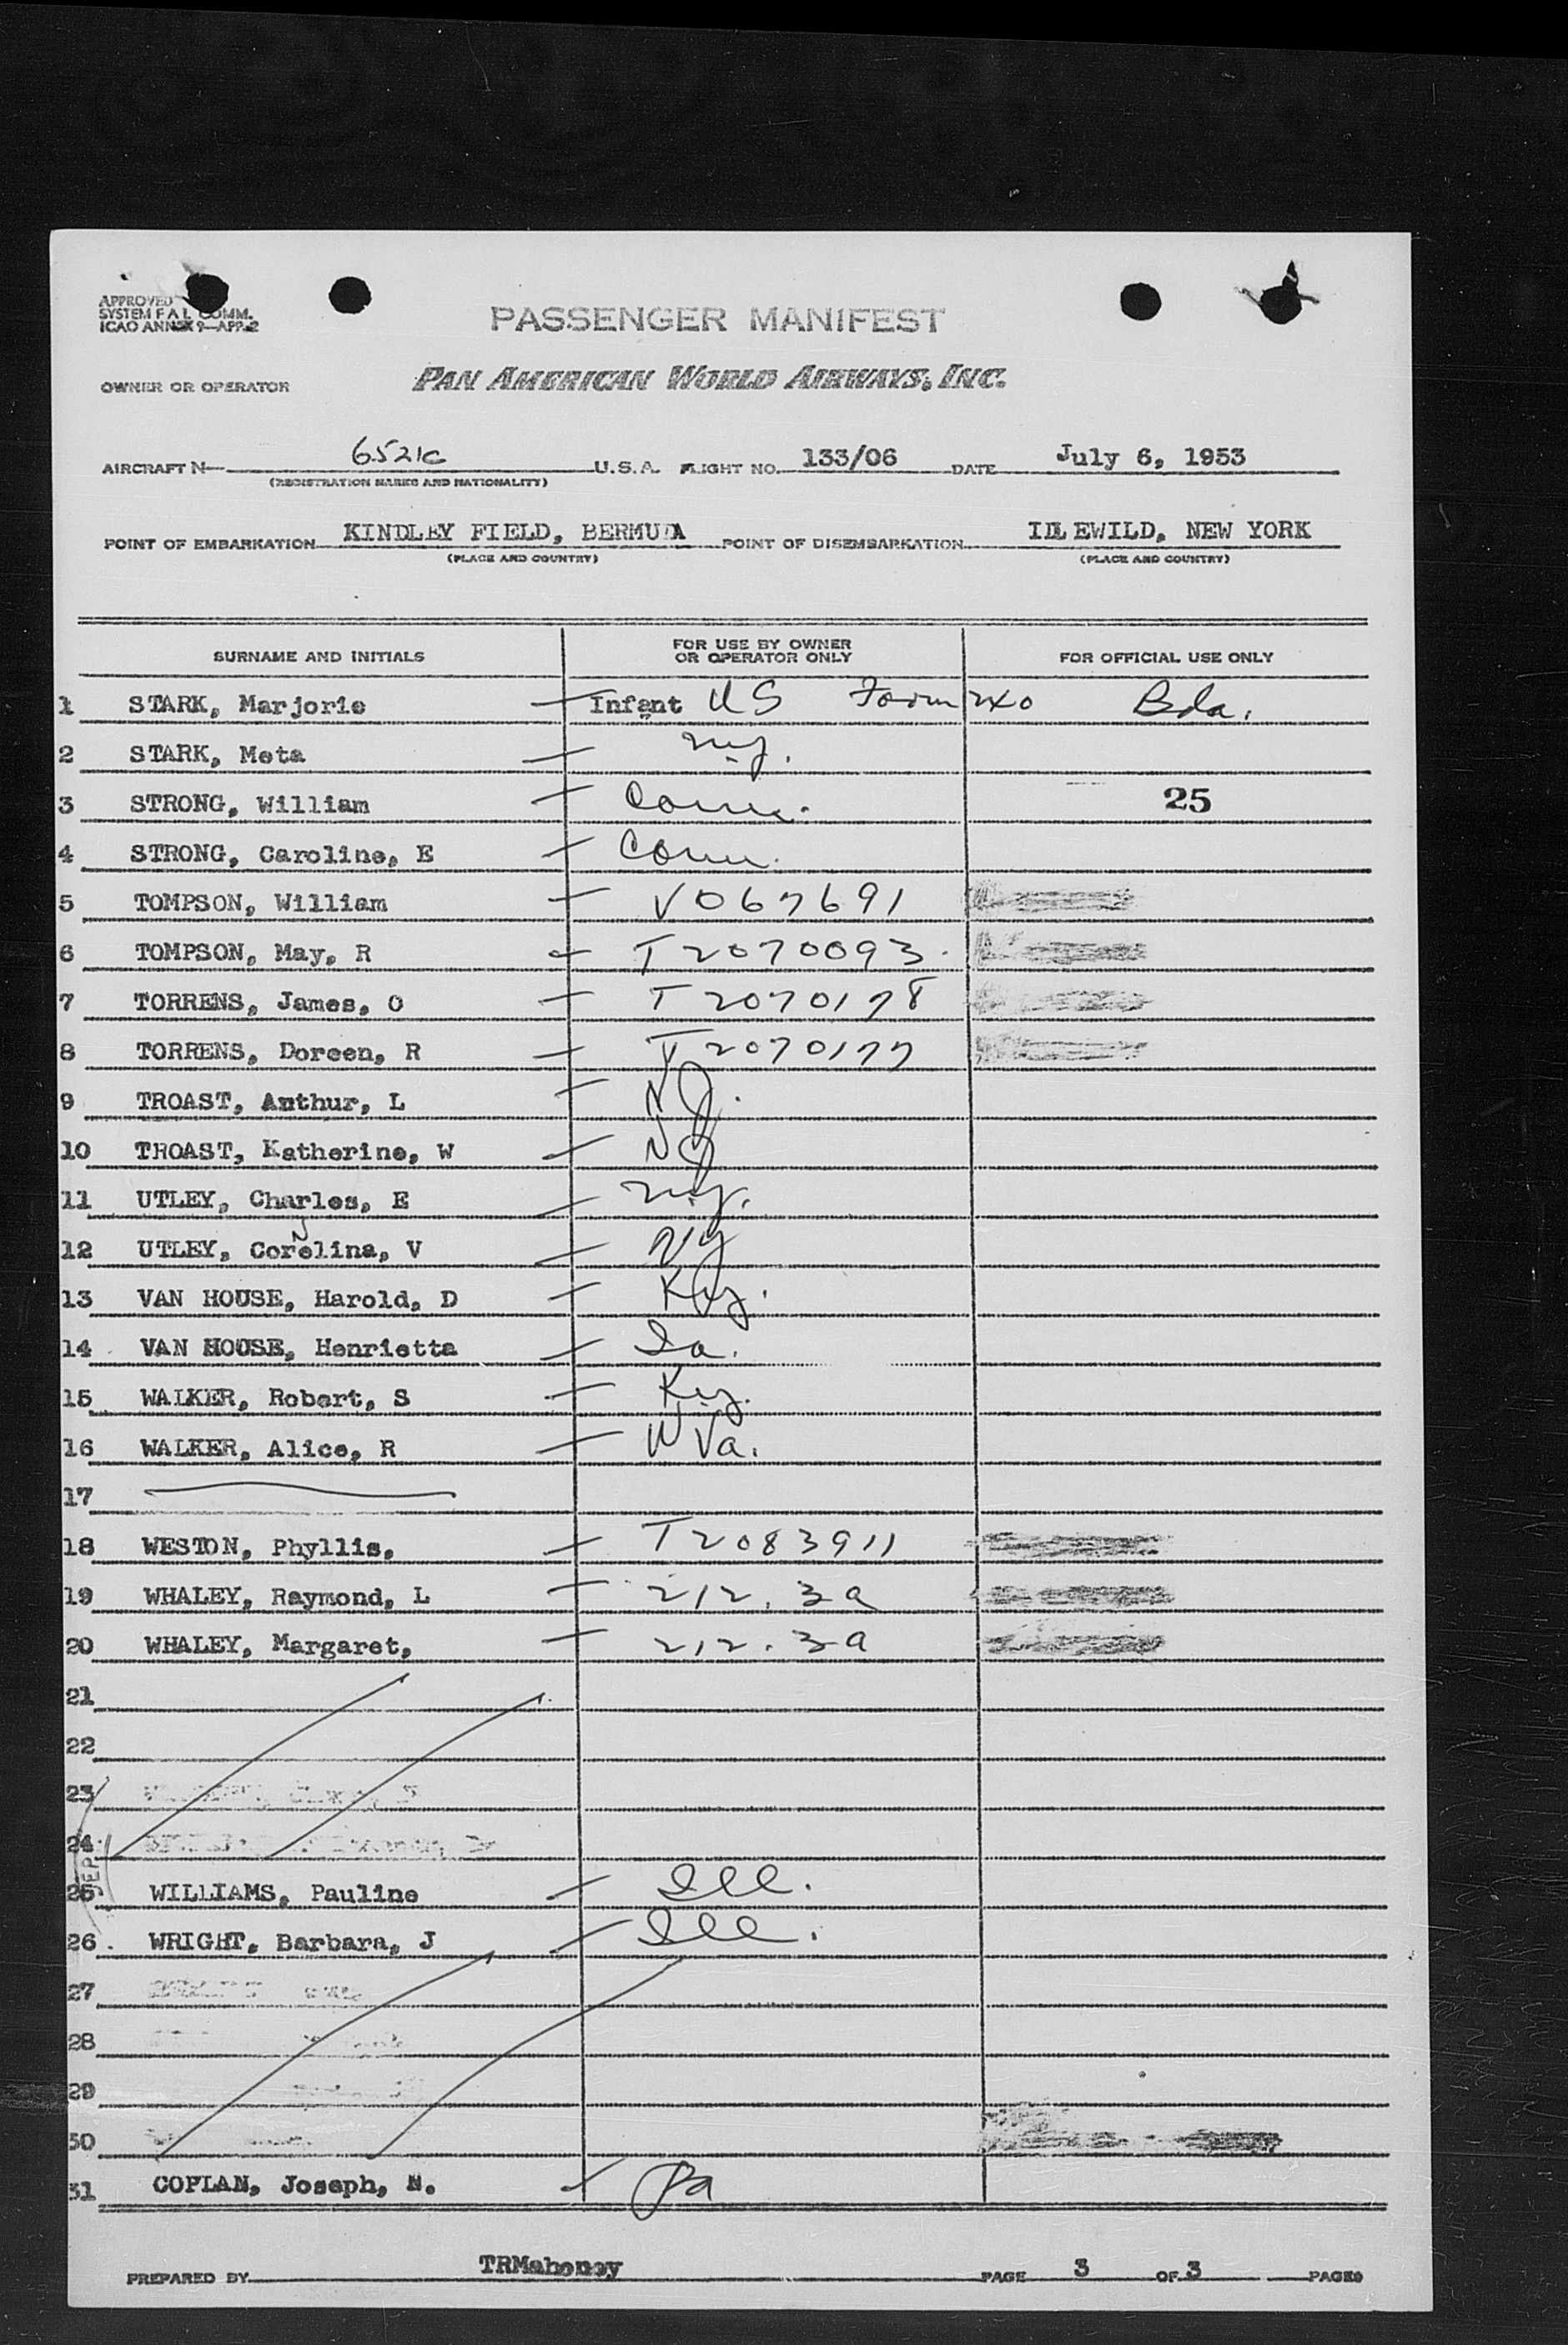 APPROVED
SYSTEM F A L COMM.
ICAO ANNEX 9—APP. 2
PASSENGER MANIFEST
OWNER OR OPERATOR PAN AMERICAN WORLD AIRWAYS, INC.
AIRCRAFT N— 6521C U.S.A. FLIGHT NO. 133/06 DATE July 6, 1953
(REGISTRATION MARKS AND NATIONALITY)
POINT OF EMBARKATION KINDLEY FIELD, BERMUDA POINT OF DISEMBARKATION IDLEWILD, NEW YORK
(PLACE AND COUNTRY) (PLACE AND COUNTRY)
SURNAME AND INITIALS FOR USE BY OWNER OR OPERATOR ONLY FOR OFFICIAL USE ONLY
1 STARK, Marjorie Infant US Form 240 Bda.
2 STARK, Meta N.Y.
3 STRONG, William Conn. 25
4 STRONG, Caroline, E Conn.
5 TOMPSON, William V067691
6 TOMPSON, May, R T2070093.
7 TORRENS, James, O T2070178
8 TORRENS, Doreen, R T2070177
9 TROAST, Authur, L NJ.
10 TROAST, Katherine, W NJ
11 UTLEY, Charles, E N.Y.
12 UTLEY, Corelina, V NY
13 VAN HOUSE, Harold, D Ky.
14 VAN HOUSE, Henrietta Ia.
15 WALKER, Robert, S Ky.
16 WALKER, Alice, R W Va.
17
18 WESTON, Phyllis, T2083911
19 WHALEY, Raymond, L 212.3a
20 WHALEY, Margaret, 212.3a
21
22
23
24
25 WILLIAMS, Pauline Ill.
26 WRIGHT, Barbara, J Ill.
27
28
29
30
31 COPLAN, Joseph, N. Pa
PREPARED BY TRMahoney PAGE 3 OF 3 PAGES